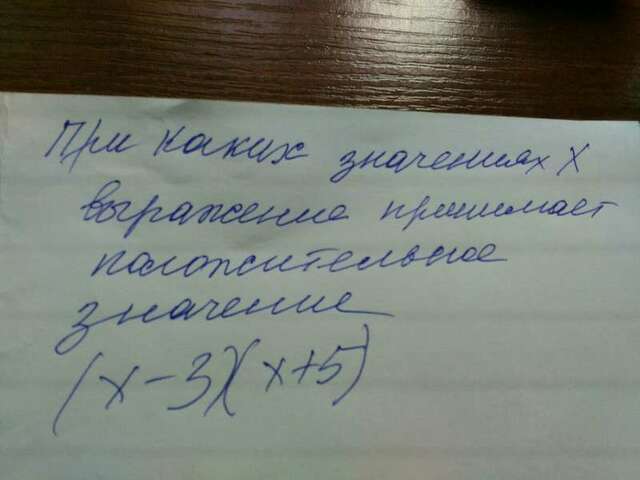 При каких значениях x
выражение принимает
положительное
значение
(x-3)(x+5)